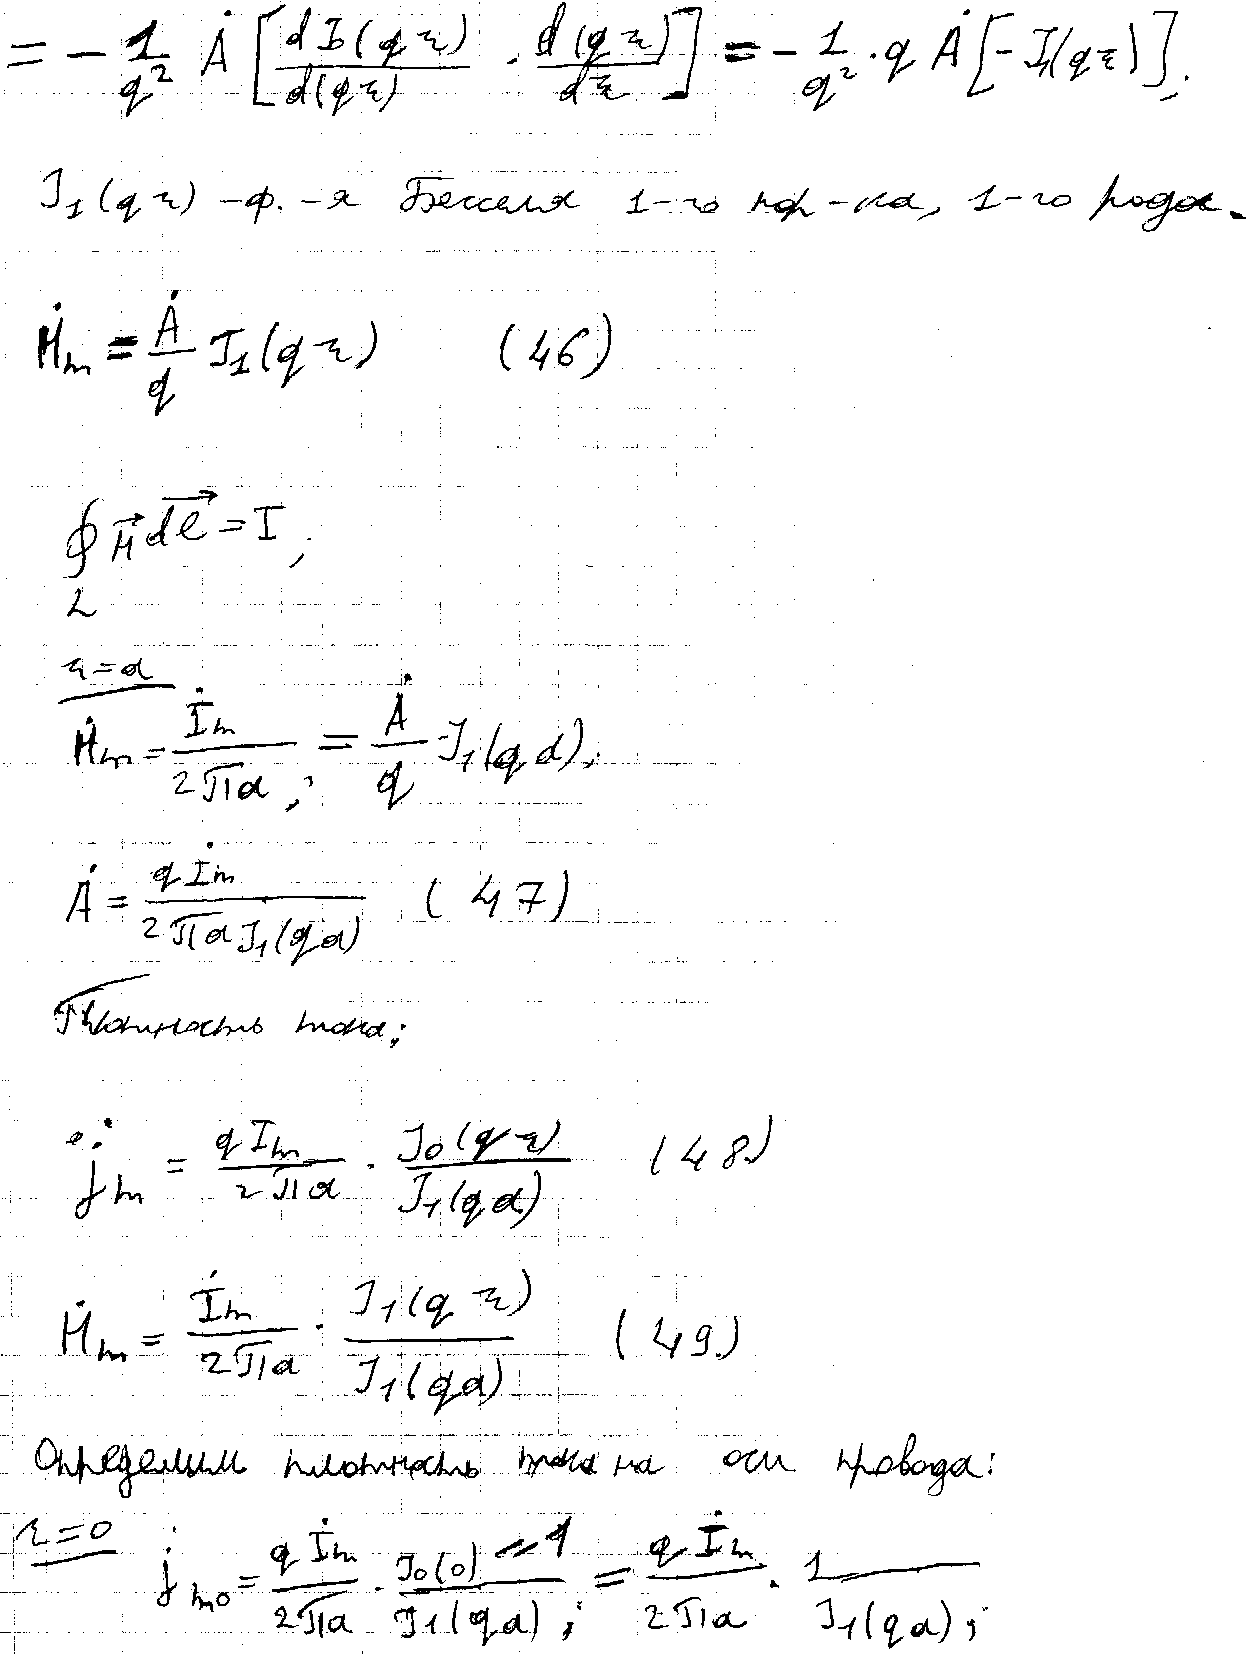 = - 1/q² Ȧ [dI₀(qr)/d(qr) · d(qr)/dr] = - 1/q² · q Ȧ [-J₁(qr)],
J₁(qr) – ф.-я Бесселя 1-го пор-ка, 1-го рода.
Ḣm = Ȧ/q J₁(qr) (46)
∮ H⃗ dl⃗ = I,
L
r=a
Ḣm = İm/2πa; = Ȧ/q · J₁(qa),
Ȧ = qİm/2πaJ₁(qa) (47)
Плотность тока:
j̇m = qIm/2πa · J₀(qr)/J₁(qa) (48)
Ḣm = İm/2πa · J₁(qr)/J₁(qa) (49)
Определим плотность тока на оси провода:
r=0 j̇m0 = qİm/2πa · J₀(0)=1/J₁(qa); = qİm/2πa · 1/J₁(qa);